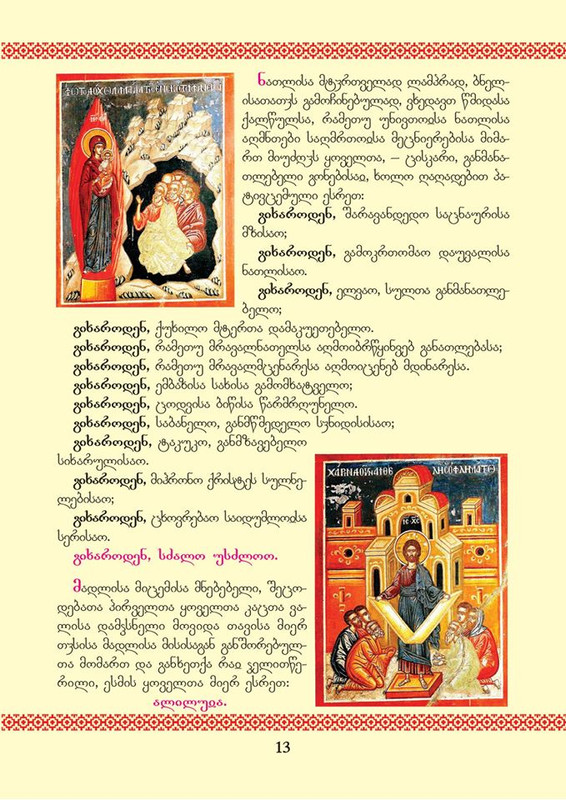 ნათლისა მტჳრთველად ლამპრად, ბნელ-
ისათათჳს გამოჩინებულად, ვხედავთ წმიდასა
ქალწულსა, რამეთუ უნივთოჲსა ნათლისა
აღმნთები საღმრთოჲსა მეცნიერებისა მიმა-
რთ მიუძღჳს ყოველთა, – ცისკარი, განმანა-
თლებელი გონებისაჲ, ხოლო ღაღადებით პა-
ტივცემული ესრეთ:
გიხაროდენ, შარავანდედო საცნაურისა
მზისაო;
გიხაროდენ, გამოკრთომაო დაუვალისა
ნათლისაო.
გიხაროდენ, ელვაო, სულთა განმანათლე-
ბელო;
გიხაროდენ, ქუხილო მტერთა დამაკუეთებელო.
გიხაროდენ, რამეთუ მრავალნათელსა აღმოიბრწყინვებ განათლებასა;
გიხაროდენ, რამეთუ მრავალმცენარესა აღმოიცენებ მდინარესა.
გიხაროდენ, ემბაზისა სახისა გამომხატველო;
გიხაროდენ, ცოდვისა ბიწისა წარმრღუნელო.
გიხაროდენ, საბანელო, განმწმედელო სჳნიდისისაო;
გიხაროდენ, ტაკუკო, განმზავებელო
სიხარულისაო.
გიხაროდენ, მიჰრონო ქრისტეს სულნე-
ლებისაო;
გიხაროდენ, ცხოვრებაო საიდუმლოჲსა
სერისაო.
გიხაროდენ, სძალო უსძლოო.
მადლისა მიცემისა მნებებელი, შეცო-
დებათა პირველთა ყოველთა კაცთა ვა-
ლისა დამჴსნელი მოვიდა თავისა მიერ
თჳსისა მადლისა მისისაგან განშორებულ-
თა მომართ და განხეთქა რაჲ ჴელითწე-
რილი, ესმის ყოველთა მიერ ესრეთ:
ალილუჲა.
13